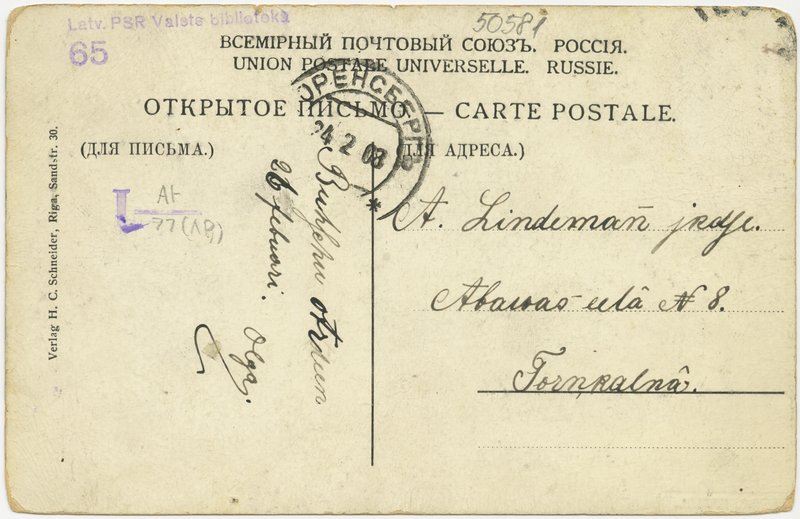 Latv. PSR Valsts bibliotēka
65
50581
ВСЕМІРНЫЙ ПОЧТОВЫЙ СОЮЗЪ. РОССІЯ.
UNION POSTALE UNIVERSELLE. RUSSIE.
ОТКРЫТОЕ ПИСЬМО — CARTE POSTALE.
(ДЛЯ ПИСЬМА.)
ДЛЯ АДРЕСА.)
ТОРЕНСБЕРГЪ
24 2 08
L
77(1B)
Verlag H. C. Schneider, Riga, Sand-str. 30.
otrdien
26 februari. Olga.
A. Lindemañ jkdze.
Abawas-eelâ N 8.
Tornkalnâ.